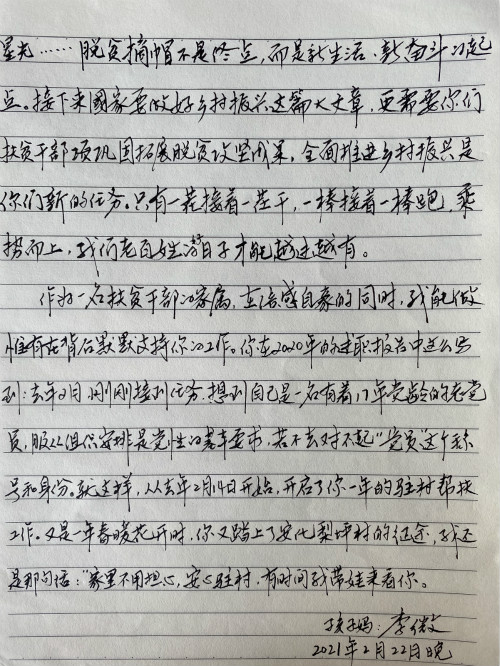 星光……脱贫摘帽不是终点,而是新生活、新奋斗的起
点。接下来国家要做好乡村振兴这篇大文章,更需要你们
扶贫干部项巩固拓展脱贫攻坚成果,全面推进乡村振兴是
你们新的任务。只有一茬接着一茬干,一棒接着一棒跑,乘
势而上,我们老百姓的日子才能越过越有。
作为一名扶贫干部的家属,在倍感自豪的同时,我能做
惟有在背后默默支持你的工作。你在2020年的述职报告中这么写
到:去年2月刚刚接到任务,想到自己是一名有着17年党龄的老党
员,服从组织安排是党性的基本要求,若不去对不起"党员"这个称
号和身份。就这样,从去年2月14日开始,开启了你一年的驻村帮扶
工作。又是一年春暖花开时,你又踏上了安化梨坪村的征途,我还
是那句话:"家里不用担心,安心驻村,有时间我带娃来看你。
孩子妈:李微
2021年2月22日晚